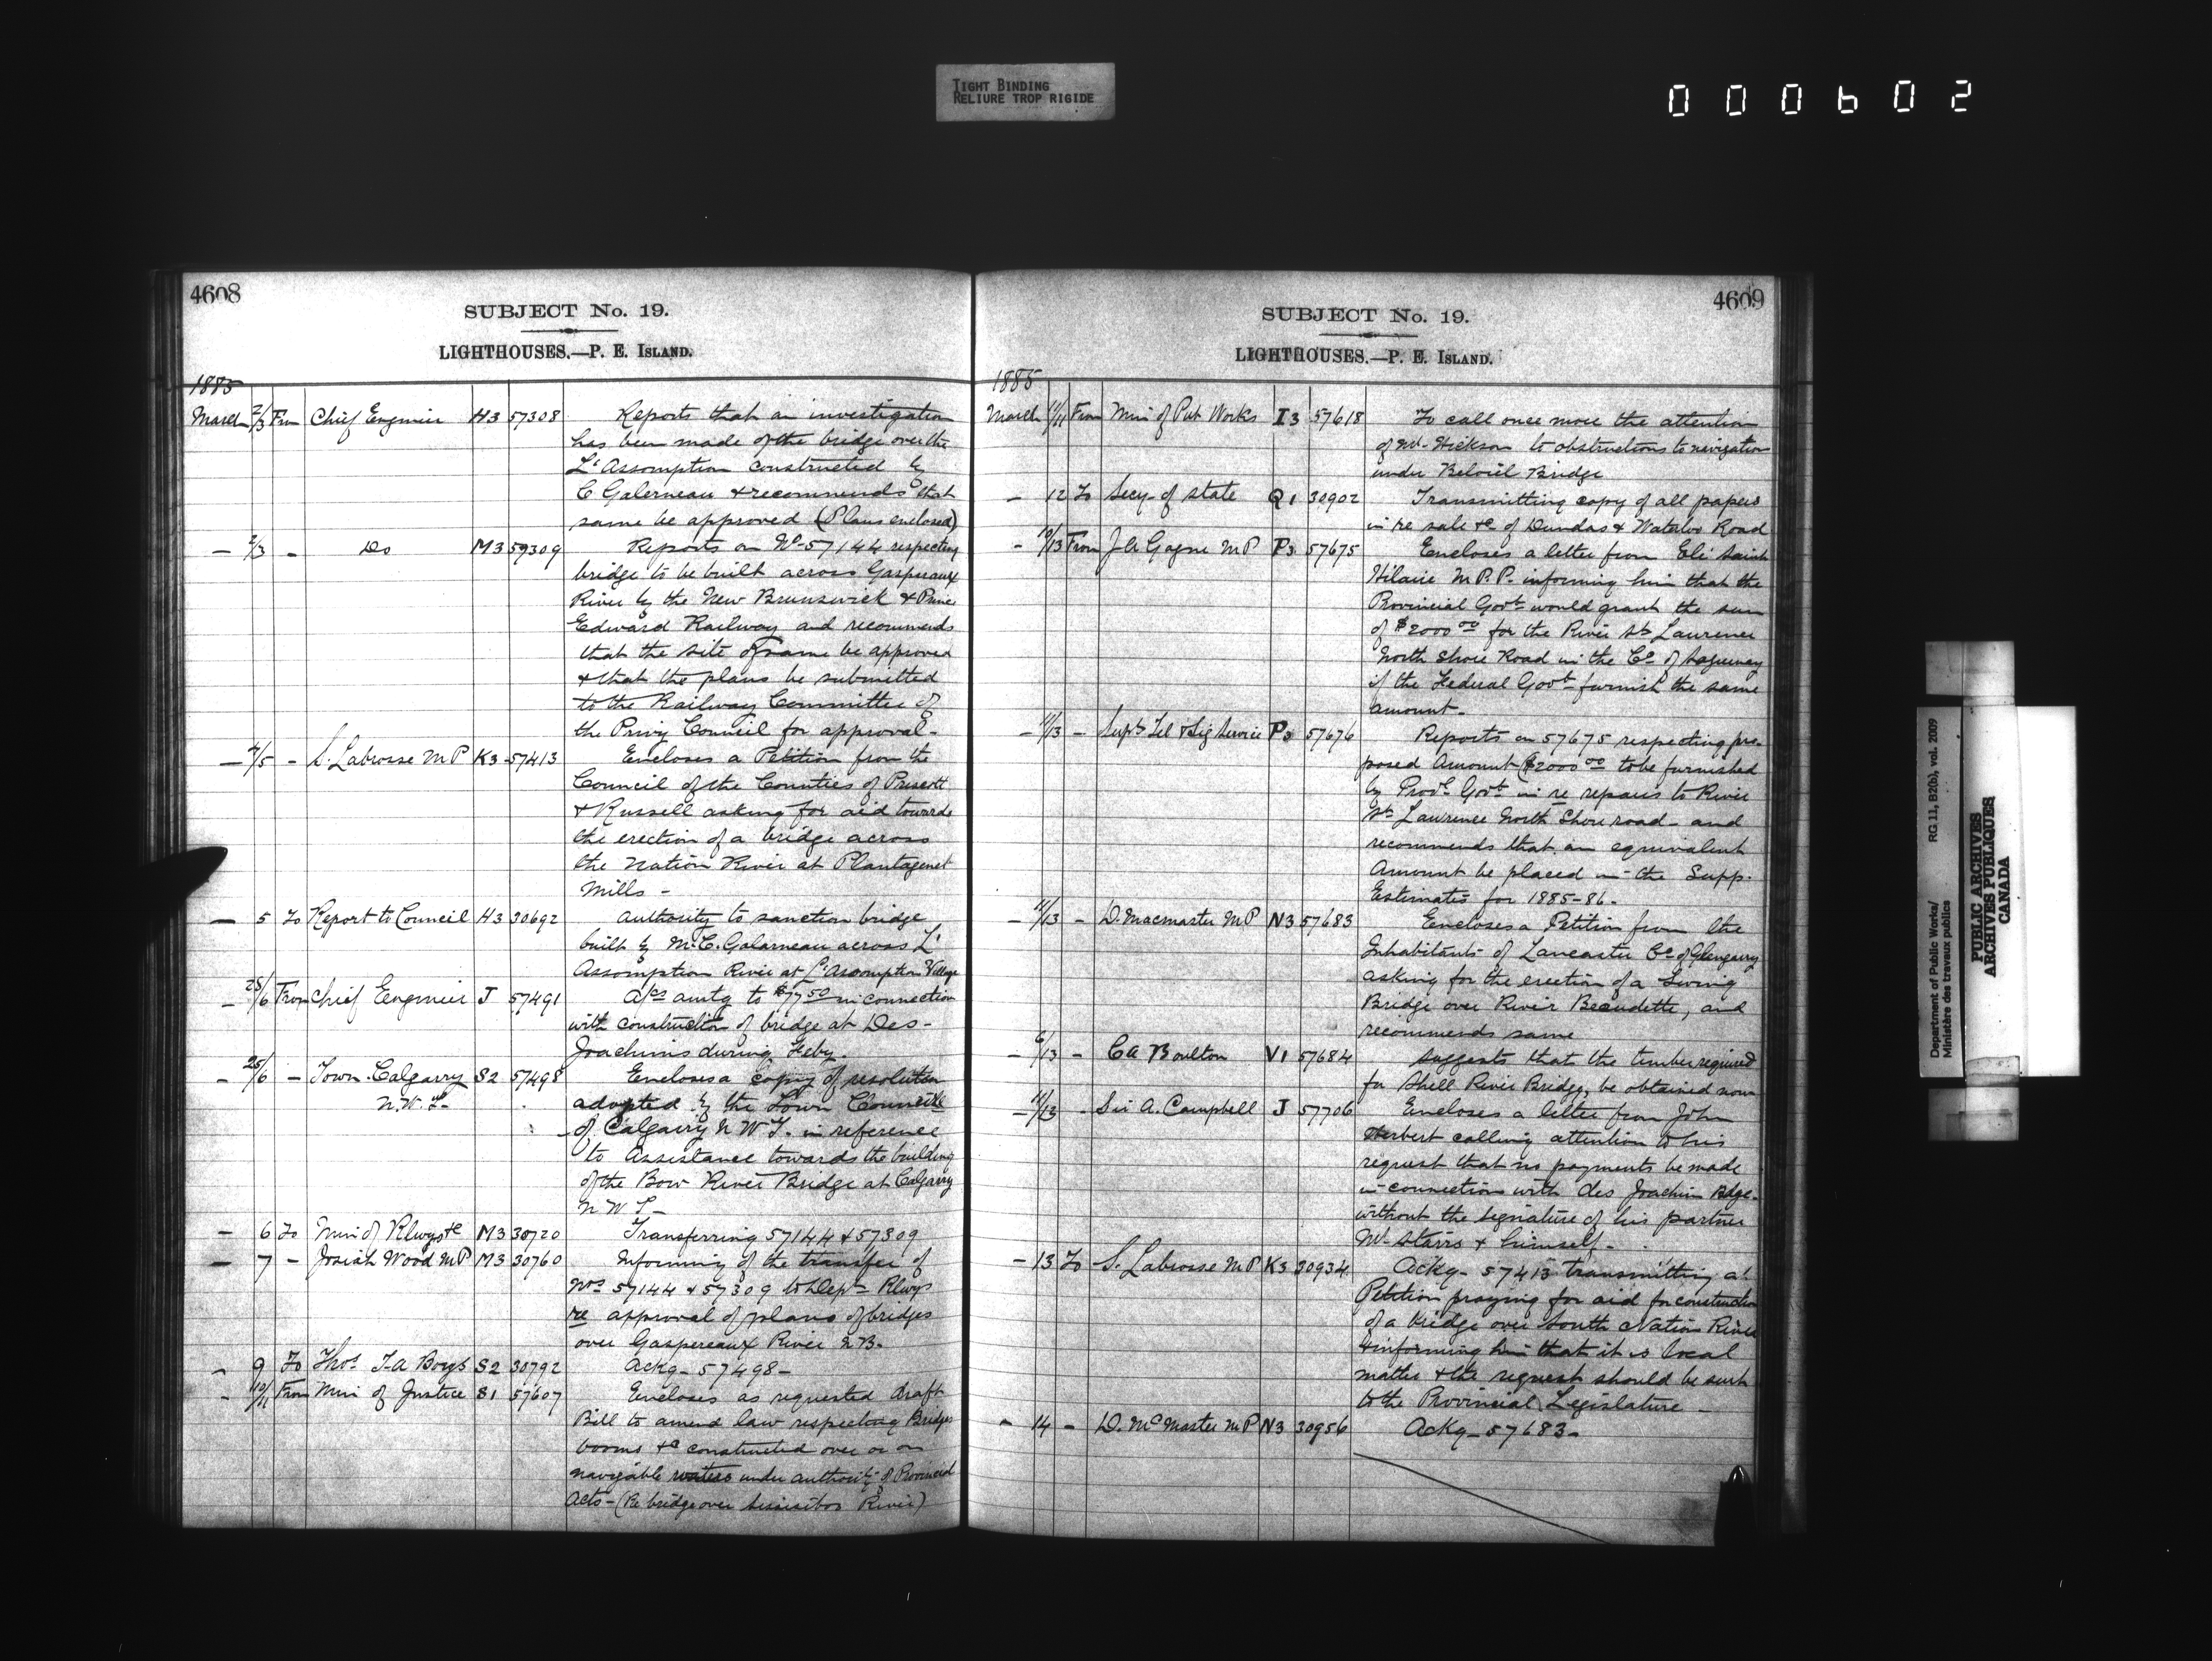 TIGHT BINDING
RELIURE TROP RIGIDE
000602
4608
SUBJECT No. 19.
LIGHTHOUSES.—P. E. ISLAND.
1885
March 2/3 From Chief Engineer H3 57308 Reports that an investigation
has been made of the bridge over the
L'Assomption constructed by
C Galerneau & recommends that
same be approved (Plans enclosed)
— 2/3 - Do M3 57309 Reports on No 57144 respecting
bridge to be built across Gaspereaux
River by the New Brunswick & Prince
Edward Railway and recommends
that the site of same be approved
& that the plans be submitted
to the Railway Committee of
the Privy Council for approval-
— 4/5 - S. Labrosse M P K3 57413 Encloses a Petition from the
Council of the Counties of Prescott
& Russell asking for aid towards
the erection of a bridge across
the Nation River at Plantagenet
Mills -
— 5 To Report to Council H3 30692 Authority to sanction bridge
built by M. C. Galarneau across L'
Assomption River at L'Assomption Village
— 28/6 From Chief Engineer J 57491 A/cs amtg to $77 50 in connection
with construction of bridge at Des-
Joachims during Feby.
— 25/6 - Town Calgarry S2 57498 Encloses a copy of resolution
N.W.T. adopted by the Town Council
of Calgarry N W T. in reference
to Assistance towards the building
of the Bow River Bridge at Calgarry
N W T -
— 6 To Min of Rlwys &c M3 30720 Transferring 57144 & 57309
— 7 - Josiah Wood M P M3 30760 Informing of the transfer of
Nos 57144 & 57309 to Dept Rlwys
re approval of plans of bridges
over Gaspereaux River N.B.
— 9 To Thos. T. A Boys S2 30792 Ackg- 57498-
- 10/11 From Min of Justice S1 57607 Encloses as requested draft
Bill to amend law respecting Bridges
booms &c constructed over or on
navigable waters under authority of Provincial
Acts - (Re bridge over River)
4609
SUBJECT No. 19.
LIGHTHOUSES.—P. E. ISLAND.
1885
March 11/11 From Min of Pub Works I3 57618 To call once more the attention
of Mr. Hickson to obstructions to navigation
under Beloeil Bridge
— 12 To Secy- of State Q1 30902 Transmitting copy of all papers
in re sale &c of Dundas & Waterloo Road
- 10/13 From J A Gagne M P P3 57675 Encloses a letter from Eli Saint
Hilaire M P.P. informing him that the
Provincial Govt would grant the sum
of $2000 00 for the River St Lawrence
North Shore Road in the Co of Saguenay
if the Federal Govt furnish the same
amount-
- 11/13 - Supt Tel & Sig Service P3 57676 Reports on 57675 respecting pro-
posed Amount ($2000 00 to be furnished
by Provl Govt in re repairs to River
St Lawrence North Shore road - and
recommends that an equivalent
Amount be placed in the Supp.
Estimates for 1885-86-
- 11/13 - D. Macmaster M P N3 57683 Encloses a Petition from the
Inhabitants of Lancaster Co of Glengarry
asking for the erection of a Swing
Bridge over River Beaudette, and
recommends same
- 6/13 - C A Boulton V1 57684 Suggests that the timber required
for Shell River Bridge, be obtained now
- 11/13 - Sir A. Campbell J 57706 Encloses a letter from John
Herbert calling attention to his
request that no payments be made
in connection with des Joachim Bdge-
without the signature of his partner
Mr Starrs & himself-
- 13 To S. Labrosse M P K3 30934 Ackg- 57413 transmitting a
Petition praying for aid for construction
of a bridge over South Nation River
& informing him that it is local
matter & the request should be sent
to the Provincial Legislature -
- 14 - D. McMaster M P N3 30956 Ackg- 57683-
Department of Public Works/
Ministère des travaux publics
RG 11, B2(b), vol. 2009
PUBLIC ARCHIVES
ARCHIVES PUBLIQUES
CANADA